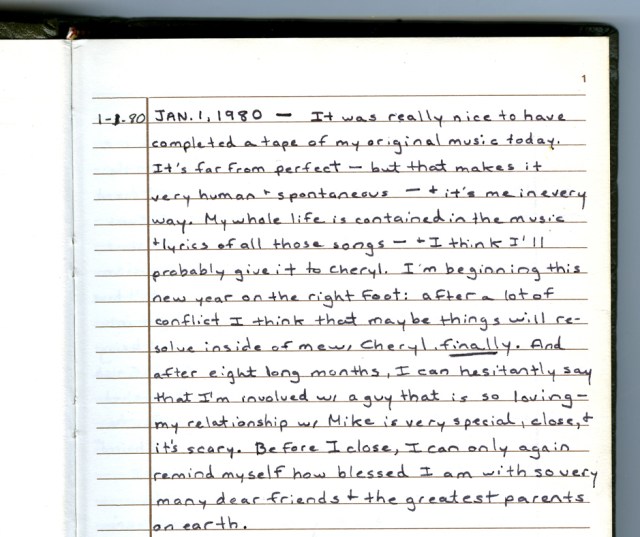 1
1-1-80 JAN. 1, 1980 — It was really nice to have
completed a tape of my original music today.
It's far from perfect — but that makes it
very human + spontaneous — + it's me in every
way. My whole life is contained in the music
+ lyrics of all those songs — + I think I'll
probably give it to Cheryl. I'm beginning this
new year on the right foot: after a lot of
conflict I think that maybe things will re-
solve inside of me w/ Cheryl finally. And
after eight long months, I can hesitantly say
that I'm involved w/ a guy that is so loving —
my relationship w/ Mike is very special, close, +
it's scary. Before I close, I can only again
remind myself how blessed I am with so very
many dear friends + the greatest parents
on earth.